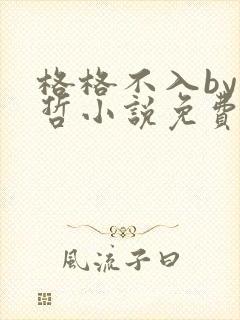 格格不入by
哲小説免費
風流子曰